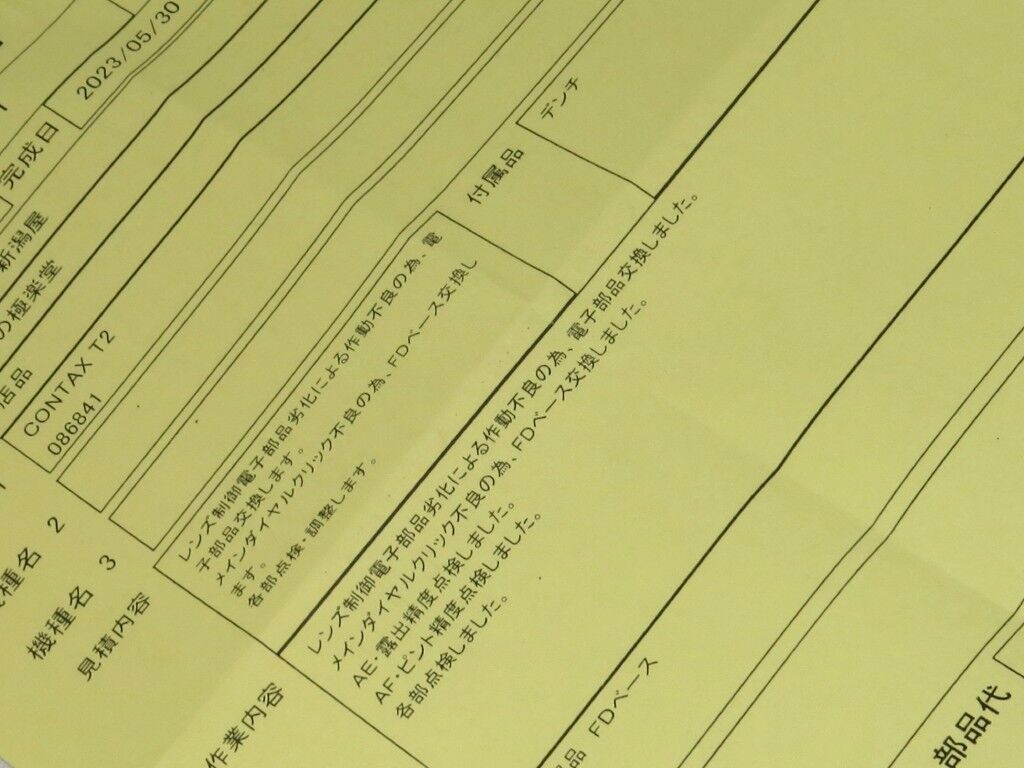 完成日 2023/05/30
新潟屋
の極楽堂
店品
CONTAX T2
086841
種名 2
機種名 3
付属品 デンチ
見積内容
レンズ制御電子部品劣化による作動不良の為、電
子部品交換します。
メインダイヤルクリック不良の為、FDベース交換し
ます。
各部点検・調整します。
作業内容
レンズ制御電子部品劣化による作動不良の為、電子部品交換しました。
メインダイヤルクリック不良の為、FDベース交換しました。
AE・露出精度点検しました。
AF・ピント精度点検しました。
各部点検しました。
品 FDベース
部品代